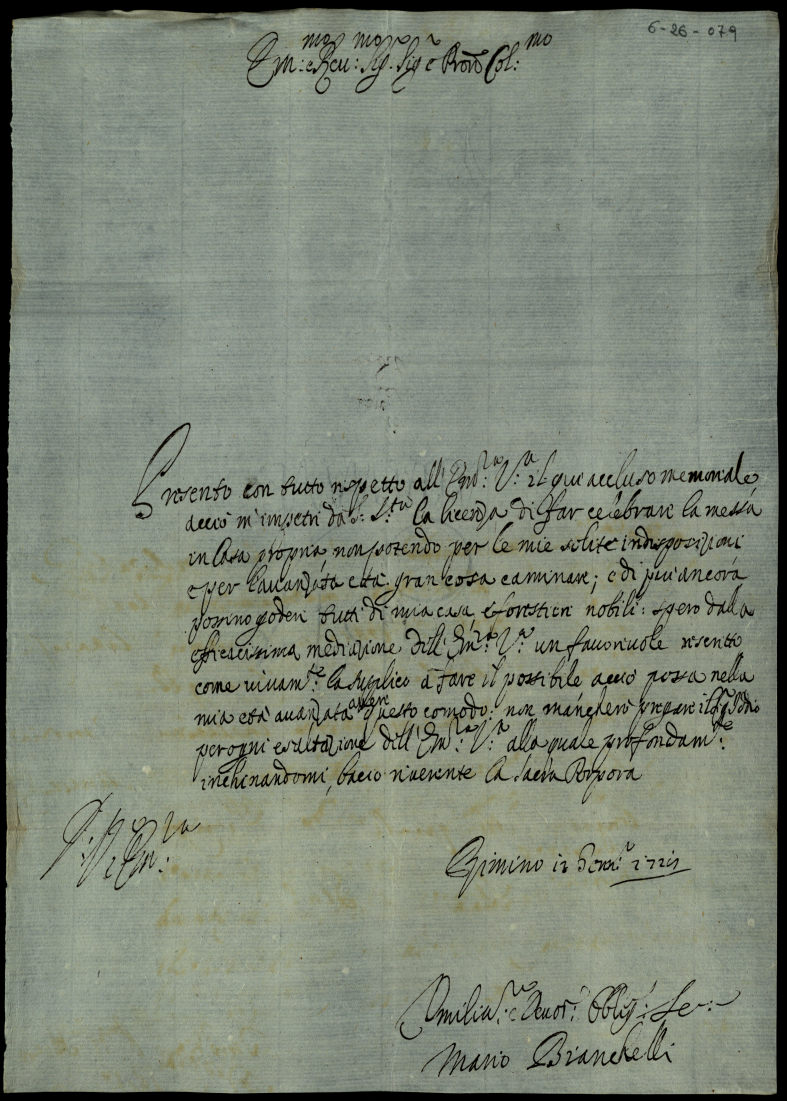 6-26-079
Em:mo e Reu:mo Sig.r Sig.r e Pron Col:mo
Presento con tutto rispetto all' Em:za V:a il qui accluso memoriale
acciò m'impetri da S: S.tà la licenza di far celebrare la messa
in Casa propria non potendo per le mie solite indisposizioni
e per l'auanzata età gran cosa caminare; e di più ancora
possino goderi tutti di mia casa, e forestieri nobili: spero dalla
efficacissima mediazione dell' Em:za V:a un fauoreuole rescritto
come viuam:te la supplico à fare il possibile acciò possa nella
mia età auanzata auere questo comodo: non mancherò pregare il Sig. Iddio
per ogni esaltazione dell' Em:za V:a alla quale profondam:te
inchinandomi, bacio riuerente la Sacra Porpora
D: V: Em:za
Rimino 12 Genn:o
Vmilis:o e Deuot:o Obblig: Ser:
Mario Bianchelli